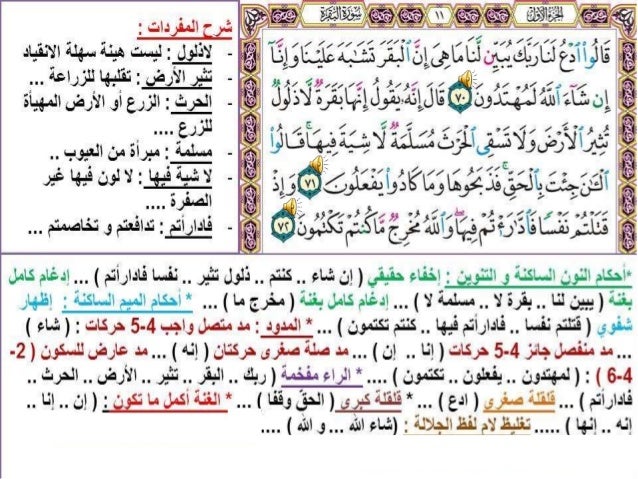 الجزء الأول
١١
سورة البقرة
قَالُوا ادْعُ لَنَا رَبَّكَ يُبَيِّن لَّنَا مَا هِيَ إِنَّ الْبَقَرَ تَشَابَهَ عَلَيْنَا وَإِنَّا
إِن شَاءَ اللَّهُ لَمُهْتَدُونَ ٧٠ قَالَ إِنَّهُ يَقُولُ إِنَّهَا بَقَرَةٌ لَّا ذَلُولٌ
تُثِيرُ الْأَرْضَ وَلَا تَسْقِي الْحَرْثَ مُسَلَّمَةٌ لَّا شِيَةَ فِيهَا قَالُوا
الْآنَ جِئْتَ بِالْحَقِّ فَذَبَحُوهَا وَمَا كَادُوا يَفْعَلُونَ ٧١ وَإِذْ
قَتَلْتُمْ نَفْسًا فَادَّارَأْتُمْ فِيهَا وَاللَّهُ مُخْرِجٌ مَّا كُنتُمْ تَكْتُمُونَ ٧٢
شرح المفردات :
- لاذلول : ليست هينة سهلة الانقياد
- تثير الأرض : تقلبها للزراعة ...
- الحرث : الزرع أو الأرض المهيأة
للزرع ....
- مسلمة : مبرأة من العيوب ..
- لا شية فيها : لا لون فيها غير
الصفرة ....
- فادارأتم : تدافعتم و تخاصمتم ...
*أحكام النون الساكنة و التنوين : إخفاء حقيقي ( إن شاء .. كنتم .. ذلول تثير .. نفسا فادارأتم ) ... إدغام كامل
بغنة ( يبين لنا .. بقرة لا .. مسلمة لا ) ... إدغام كامل بغنة ( مخرج ما ) ... * أحكام الميم الساكنة : إظهار
شفوي ( قتلتم نفسا .. فادارأتم فيها .. كنتم تكتمون ) ... * المدود : مد متصل واجب 4-5 حركات : ( شاء )
... مد منفصل جائز 4-5 حركات ( إنا .. إن ) ... مد صلة صغرى حركتان ( إنه ) ... مد عارض للسكون ( 2-
4-6 ) : ( لمهتدون .. يفعلون .. تكتمون ) .... * الراء مفخمة ( ربك .. البقر .. تثير .. الأرض .. الحرث ..
فادارأتم ) ... * قلقلة صغرى ( ادع ) ... * قلقلة كبرى ( الحق وقفا ) ... * الغنة أكمل ما تكون : ( إن .. إنا ..
إنه .. إنها ) ..... تغليظ لام لفظ الجلالة : (شاء الله ... و الله ) ....